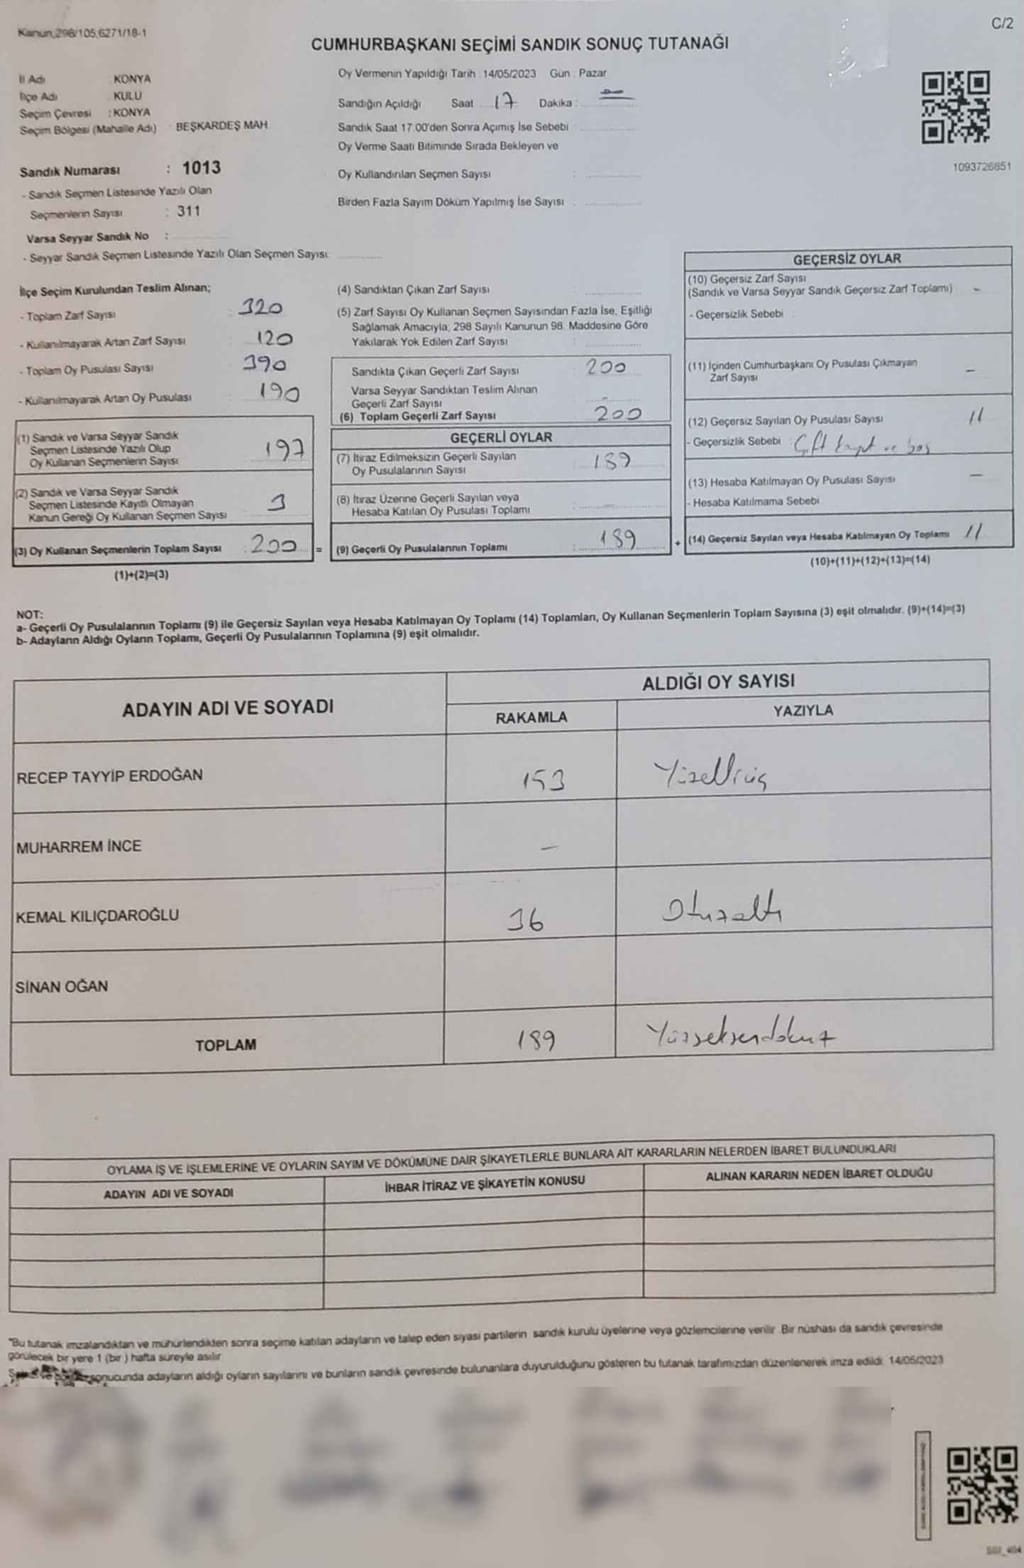 Kanun,298/105,6271/18-1
C/2
CUMHURBAŞKANI SEÇİMİ SANDIK SONUÇ TUTANAĞI
İl Adı KONYA
İlçe Adı KULU
Seçim Çevresi : KONYA
Seçim Bölgesi (Mahalle Adı) BEŞKARDEŞ MAH
Sandık Numarası : 1013
- Sandık Seçmen Listesinde Yazılı Olan
Seçmenlerin Sayısı : 311
Varsa Seyyar Sandık No :
- Seyyar Sandık Seçmen Listesinde Yazılı Olan Seçmen Sayısı:
Oy Vermenin Yapıldığı Tarih : 14/05/2023 Gün : Pazar
Sandığın Açıldığı Saat 17 Dakika :
Sandık Saat 17:00'den Sonra Açımış İse Sebebi
Oy Verme Saati Bitiminde Sırada Bekleyen ve
Oy Kullandırılan Seçmen Sayısı :
Birden Fazla Sayım Döküm Yapılmış İse Sayısı :
1093726851
İlçe Seçim Kurulundan Teslim Alınan;
- Toplam Zarf Sayısı : 320
- Kullanılmayarak Artan Zarf Sayısı : 120
- Toplam Oy Pusulası Sayısı : 390
- Kullanılmayarak Artan Oy Pusulası 190
(1) Sandık ve Varsa Seyyar Sandık
Seçmen Listesinde Yazılı Olup
Oy Kullanan Seçmenlerin Sayısı 197
(2) Sandık ve Varsa Seyyar Sandık
Seçmen Listesinde Kayıtlı Olmayan
Kanun Gereği Oy Kullanan Seçmen Sayısı 3
(3) Oy Kullanan Seçmenlerin Toplam Sayısı : 200 =
(1)+(2)=(3)
(4) Sandıktan Çıkan Zarf Sayısı :
(5) Zarf Sayısı Oy Kullanan Seçmen Sayısından Fazla İse, Eşitliği
Sağlamak Amacıyla, 298 Sayılı Kanunun 98. Maddesine Göre
Yakılarak Yok Edilen Zarf Sayısı :
Sandıkta Çıkan Geçerli Zarf Sayısı : 200
Varsa Seyyar Sandıktan Teslim Alınan
Geçerli Zarf Sayısı : -
(6) Toplam Geçerli Zarf Sayısı 200
GEÇERLİ OYLAR
(7) İtiraz Edilmeksizin Geçerli Sayılan
Oy Pusulalarının Sayısı : 189
(8) İtiraz Üzerine Geçerli Sayılan veya
Hesaba Katılan Oy Pusulası Toplamı : -
(9) Geçerli Oy Pusulalarının Toplamı : 189 +
GEÇERSİZ OYLAR
(10) Geçersiz Zarf Sayısı
(Sandık ve Varsa Seyyar Sandık Geçersiz Zarf Toplamı) -
- Geçersizlik Sebebi :
(11) İçinden Cumhurbaşkanı Oy Pusulası Çıkmayan
Zarf Sayısı -
(12) Geçersiz Sayılan Oy Pusulası Sayısı 11
- Geçersizlik Sebebi : ve boş
(13) Hesaba Katılmayan Oy Pusulası Sayısı -
- Hesaba Katılmama Sebebi
(14) Geçersiz Sayılan veya Hesaba Katılmayan Oy Toplamı 11
(10)+(11)+(12)+(13)=(14)
NOT:
a- Geçerli Oy Pusulalarının Toplamı (9) ile Geçersiz Sayılan veya Hesaba Katılmayan Oy Toplamı (14) Toplamları, Oy Kullanan Seçmenlerin Toplam Sayısına (3) eşit olmalıdır. (9)+(14)=(3)
b- Adayların Aldığı Oyların Toplamı, Geçerli Oy Pusulalarının Toplamına (9) eşit olmalıdır.
ADAYIN ADI VE SOYADI
ALDIĞI OY SAYISI
RAKAMLA YAZIYLA
RECEP TAYYİP ERDOĞAN 153 Yüzelliüç
MUHARREM İNCE -
KEMAL KILIÇDAROĞLU 36 Otuzaltı
SİNAN OĞAN
TOPLAM 189 Yüzseksendokuz
OYLAMA İŞ VE İŞLEMLERİNE VE OYLARIN SAYIM VE DÖKÜMÜNE DAİR ŞİKAYETLERLE BUNLARA AİT KARARLARIN NELERDEN İBARET BULUNDUKLARI
ADAYIN ADI VE SOYADI İHBAR İTİRAZ VE ŞİKAYETİN KONUSU ALINAN KARARIN NEDEN İBARET OLDUĞU
"Bu tutanak imzalandıktan ve mühürlendikten sonra seçime katılan adayların ve talep eden siyasi partilerin sandık kurulu üyelerine veya gözlemcilerine verilir. Bir nüshası da sandık çevresinde
görülecek bir yere 1 (bir ) hafta süreyle asılır
sonucunda adayların aldığı oyların sayılarını ve bunların sandık çevresinde bulunanlara duyurulduğunu gösteren bu tutanak tarafımızdan düzenlenerek imza edildi. 14/05/2023